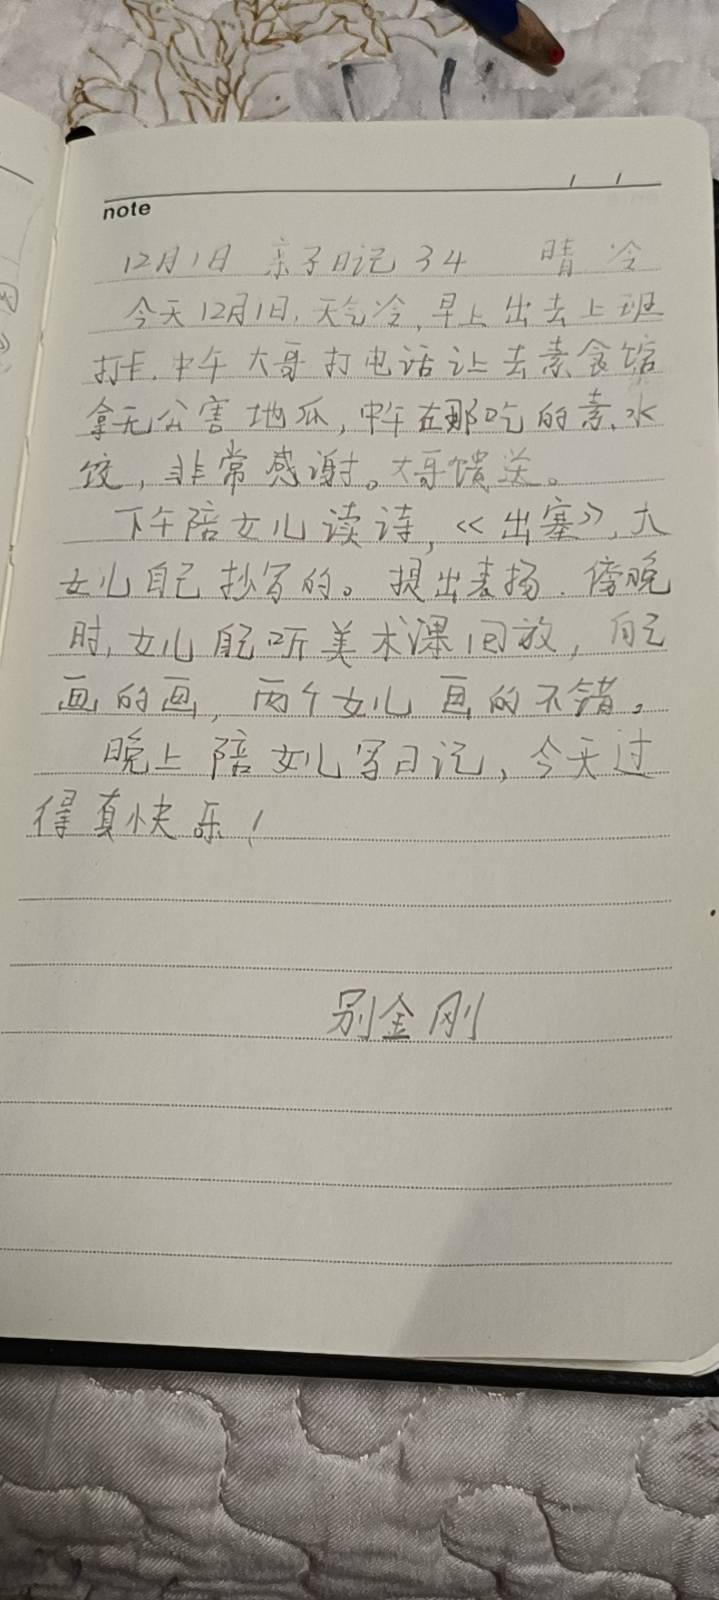 note
12月1日 亲子日记34 晴 冷
今天12月1日,天气冷,早上出去上班
打卡.中午大哥打电话让去素食馆
拿无公害地瓜,中午在那吃的素水
饺,非常感谢。大哥馈送。
下午陪女儿读诗,《出塞》,大
女儿自己抄写的。提出表扬.傍晚
时,女儿自己听美术课回放,自己
画的画,两个女儿画的不错。
晚上陪女儿写日记,今天过
得真快乐!
别金刚